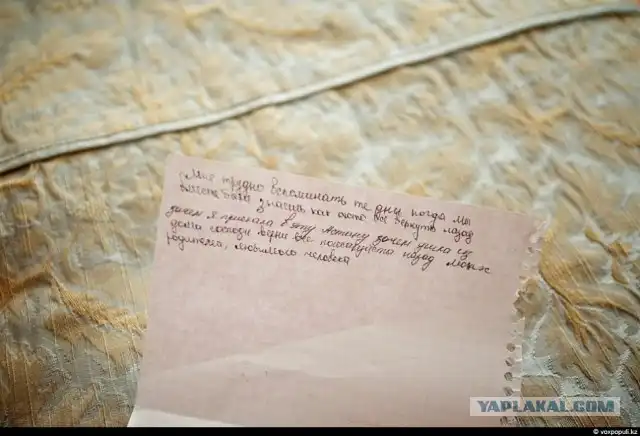 Мне трудно вспоминать те дни когда мы
вместе были знаешь как охота все вернуть назад
зачем я приехала в эту Астану зачем ушла из
дома господи верни все пожалуйста назад моих
родителей, любимого человека
YAPLAKAL.COM
© voxpopuli.kz